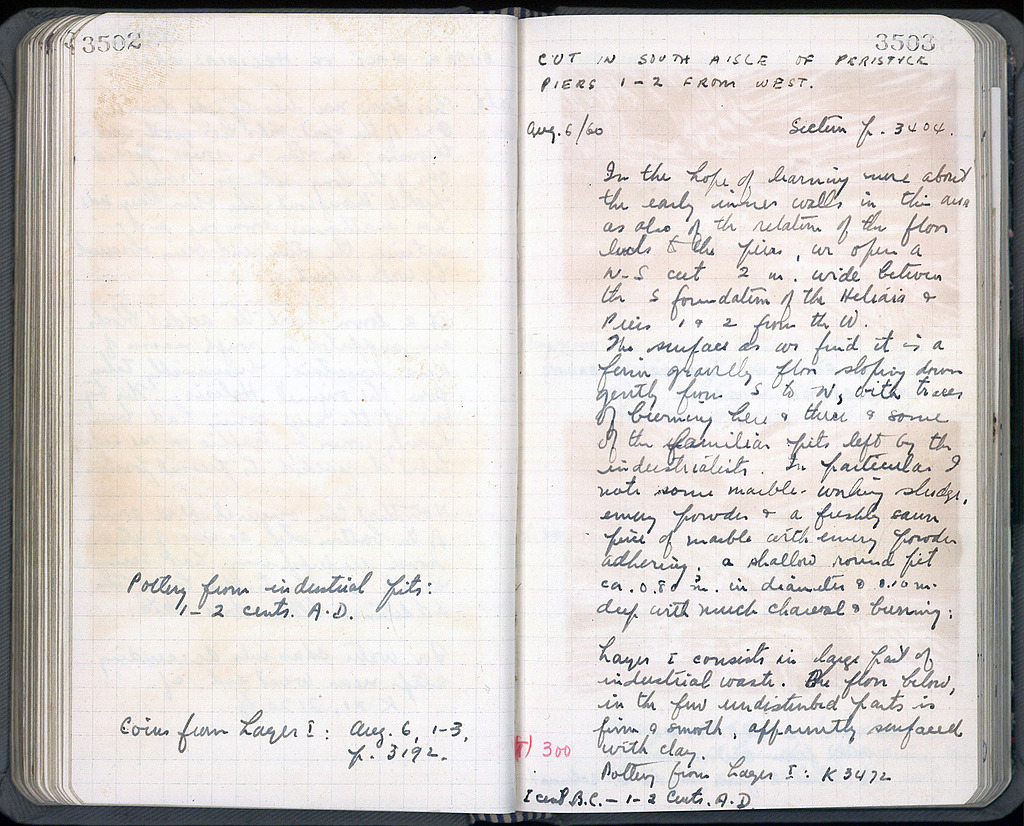 3502
Pottery from industrial pits:
1-2 cents. A.D.
Coins from Layer I: Aug. 6, 1-3,
p. 3192.
3503
CUT IN SOUTH AISLE OF PERISTYLE
PIERS 1-2 FROM WEST.
Aug. 6/60 Section p. 3404.
In the hope of learning more about
the early inner walls in this area
as also of the relation of the floor
levels to the piers, we open a
N-S cut 2 m. wide between
the S foundation of the Heliaia &
Piers 1 & 2 from the W.
The surface as we find it is a
firm gravelly floor sloping down
gently from S to N, with traces
of burning here & there & some
of the familiar pits left by the
industrialists. In particular I
note some marble-working sludge,
emery powder & a freshly sawn
piece of marble with emery powder
adhering; a shallow round pit
ca. 0.80 m. in diameter & 0.10 m.
deep with much charcoal & burning;
Layer I consists in large part of
industrial waste. The floor below,
in the few undisturbed parts is
firm & smooth, apparently surfaced
with clay.
300
Pottery from Layer I: K 3472
I cent B.C. - 1-2 cents. A.D.